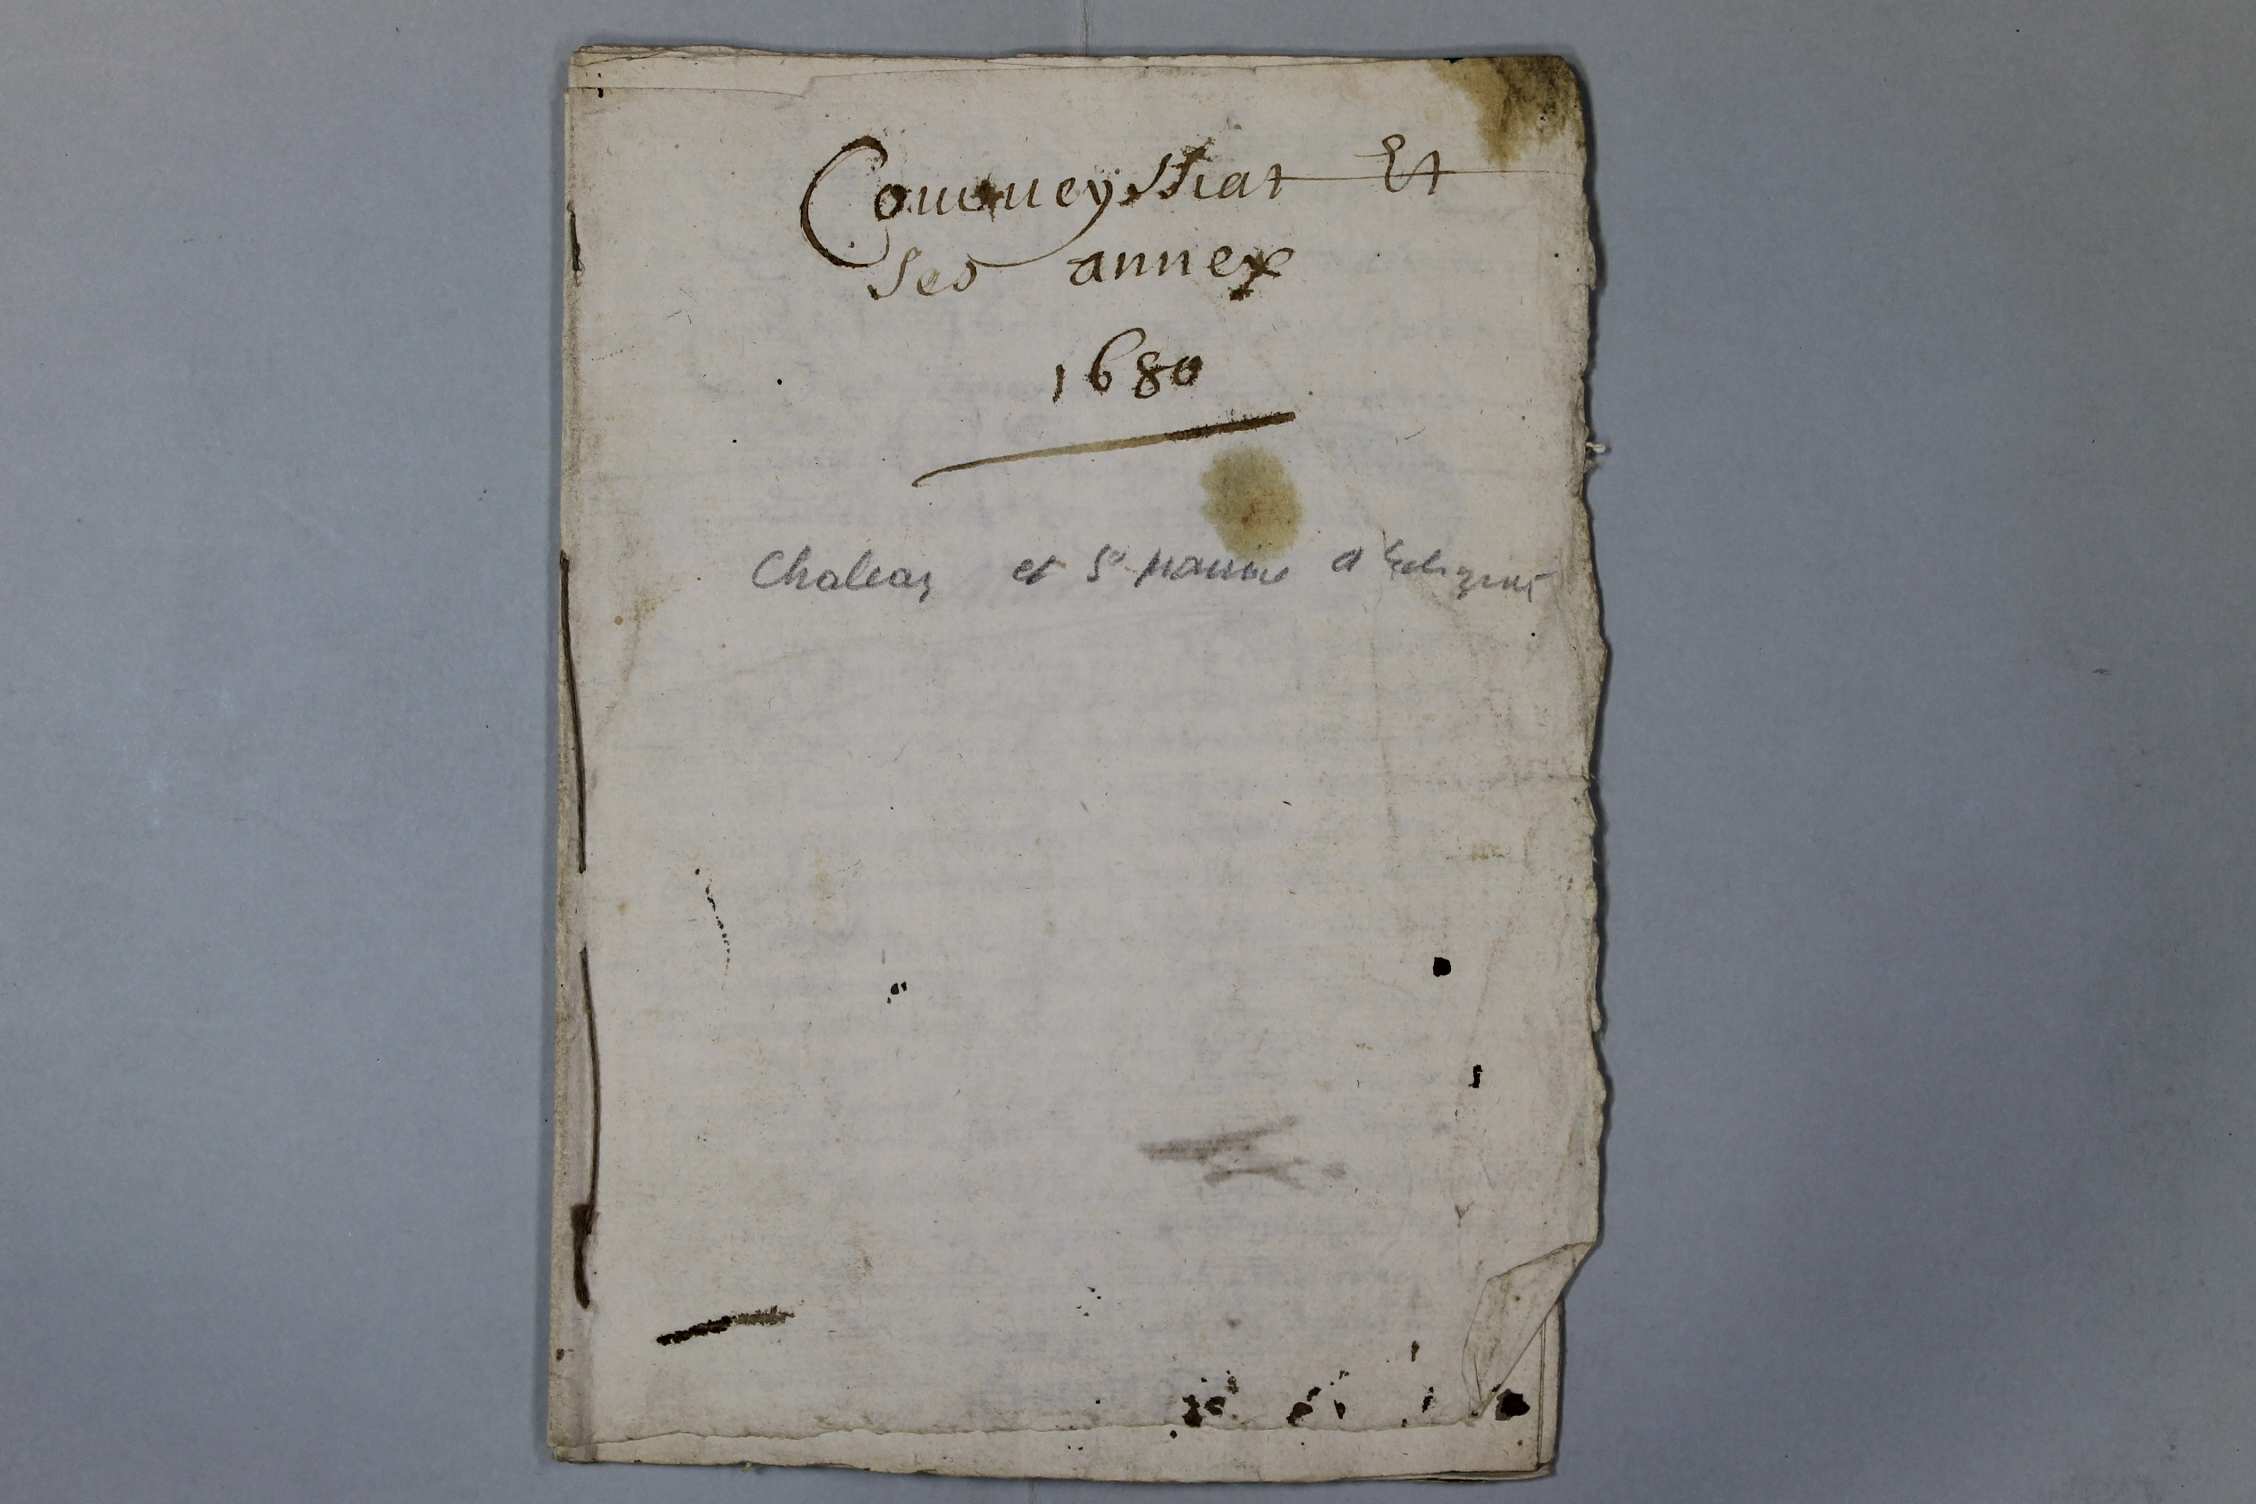 Couuueyssiat Et
ses annex
1680
Chaleaz et St Maurice d'Echazeaux